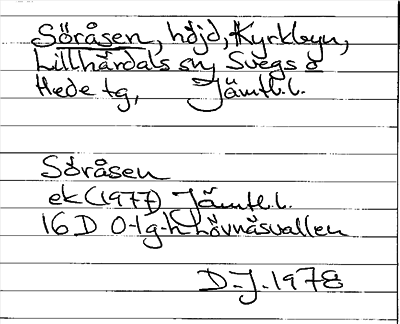 Söråsen, höjd, Kyrkbyn,
Lillhärdals sn, Svegs o
Hede tg, Jämtl.l.
Söråsen
ek (1977) Jämtl.l.
16 D 0-1g-h Lövnäsvallen
D.J. 1978